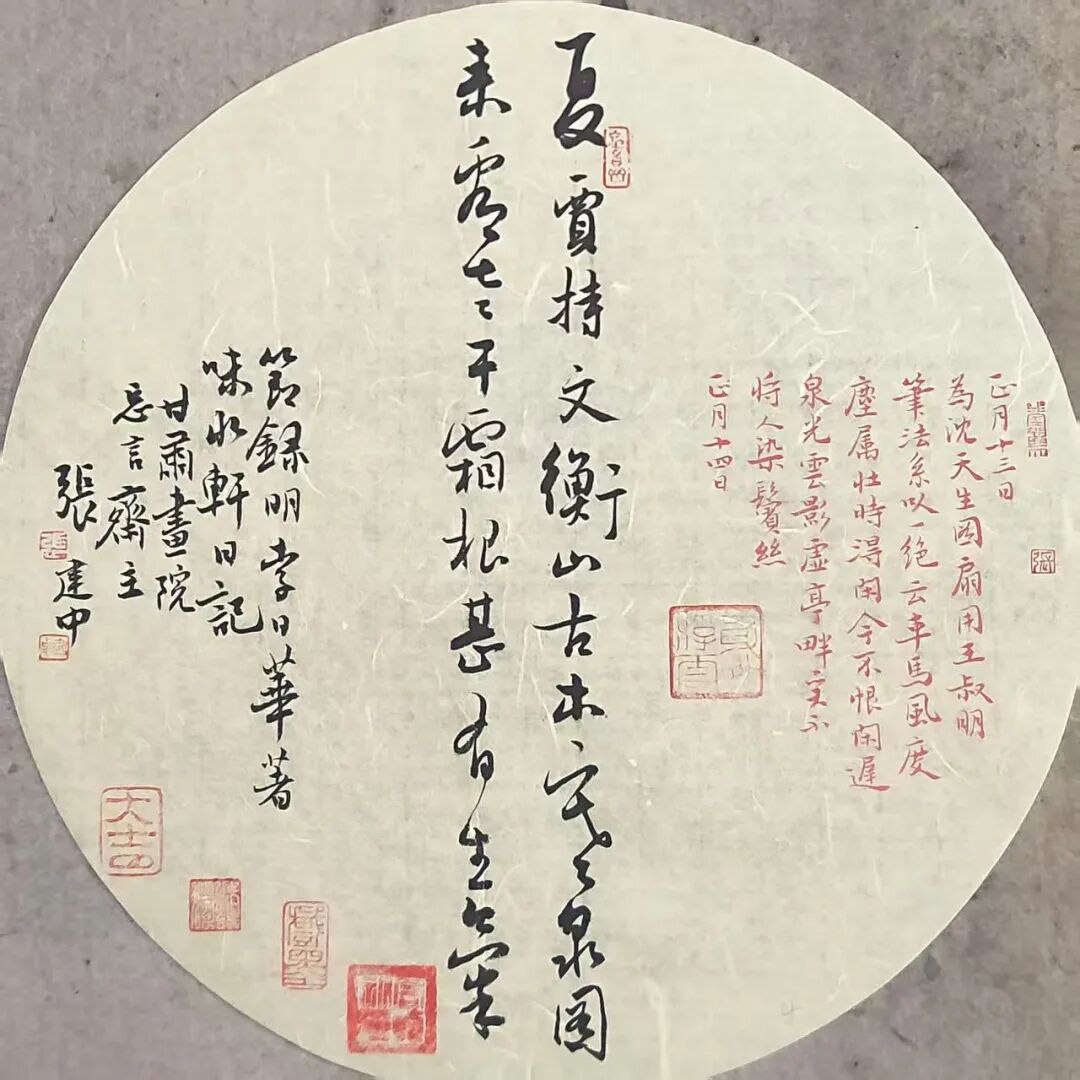 正月十三日
為沈天生圖扇用王叔明
筆法系以一絕云車馬風度
塵属壮時淂閑今不恨閑遲
泉光雲影虚亭畔寔不
将人染鬢絲
正月十四日
夏賈持文衡山古木寒泉圖
来干霜根甚有生
節録明李日華著
味水軒日記
甘肅畫院
忘言齋主
張建中